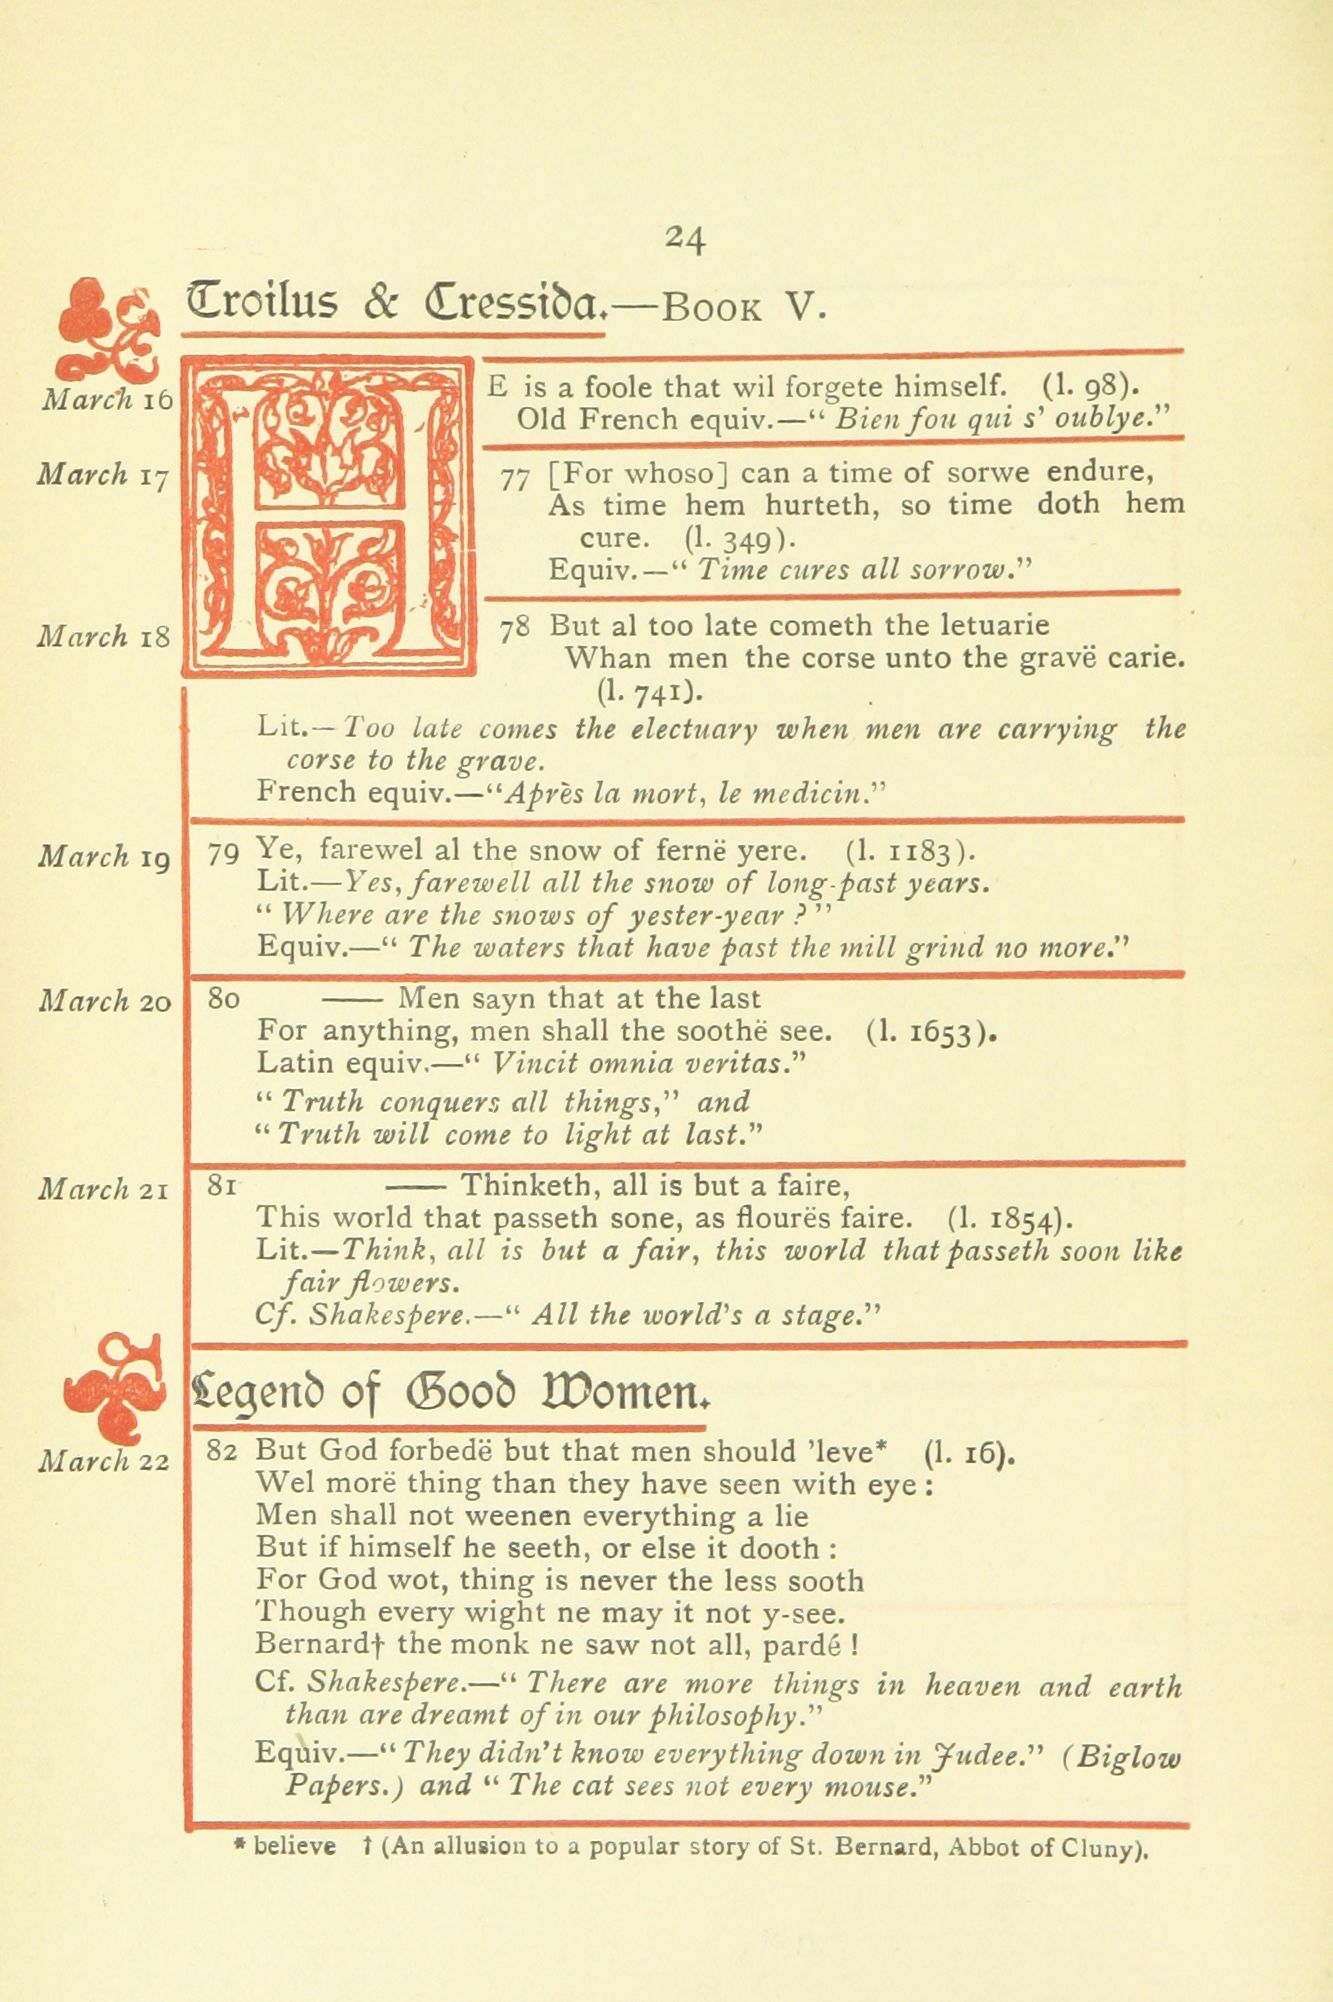 24
Troilus & Cressida.—BOOK V.
March 16
HE is a foole that wil forgete himself. (l. 98).
Old French equiv.—“ Bien fou qui s' oublye.”
March 17
77 [For whoso] can a time of sorwe endure,
As time hem hurteth, so time doth hem
cure. (l. 349).
Equiv.—“ Time cures all sorrow.”
March 18
78 But al too late cometh the letuarie
Whan men the corse unto the gravë carie.
(l. 741).
Lit.—Too late comes the electuary when men are carrying the
corse to the grave.
French equiv.—“Après la mort, le medicin.”
March 19
79 Ye, farewel al the snow of fernë yere. (l. 1183).
Lit.—Yes, farewell all the snow of long-past years.
“ Where are the snows of yester-year ? ”
Equiv.—“ The waters that have past the mill grind no more.”
March 20
80 —— Men sayn that at the last
For anything, men shall the soothë see. (l. 1653).
Latin equiv.—“ Vincit omnia veritas.”
“ Truth conquers all things,” and
“ Truth will come to light at last.”
March 21
81 —— Thinketh, all is but a faire,
This world that passeth sone, as flourës faire. (l. 1854).
Lit.—Think, all is but a fair, this world that passeth soon like
fair flowers.
Cf. Shakespere.—“ All the world's a stage.”
Legend of Good Women.
March 22
82 But God forbedë but that men should ’leve* (l. 16).
Wel morë thing than they have seen with eye :
Men shall not weenen everything a lie
But if himself he seeth, or else it dooth :
For God wot, thing is never the less sooth
Though every wight ne may it not y-see.
Bernard† the monk ne saw not all, pardé !
Cf. Shakespere.—“ There are more things in heaven and earth
than are dreamt of in our philosophy.”
Equiv.—“ They didn't know everything down in Judee.” (Biglow
Papers.) and “ The cat sees not every mouse.”
* believe † (An allusion to a popular story of St. Bernard, Abbot of Cluny).